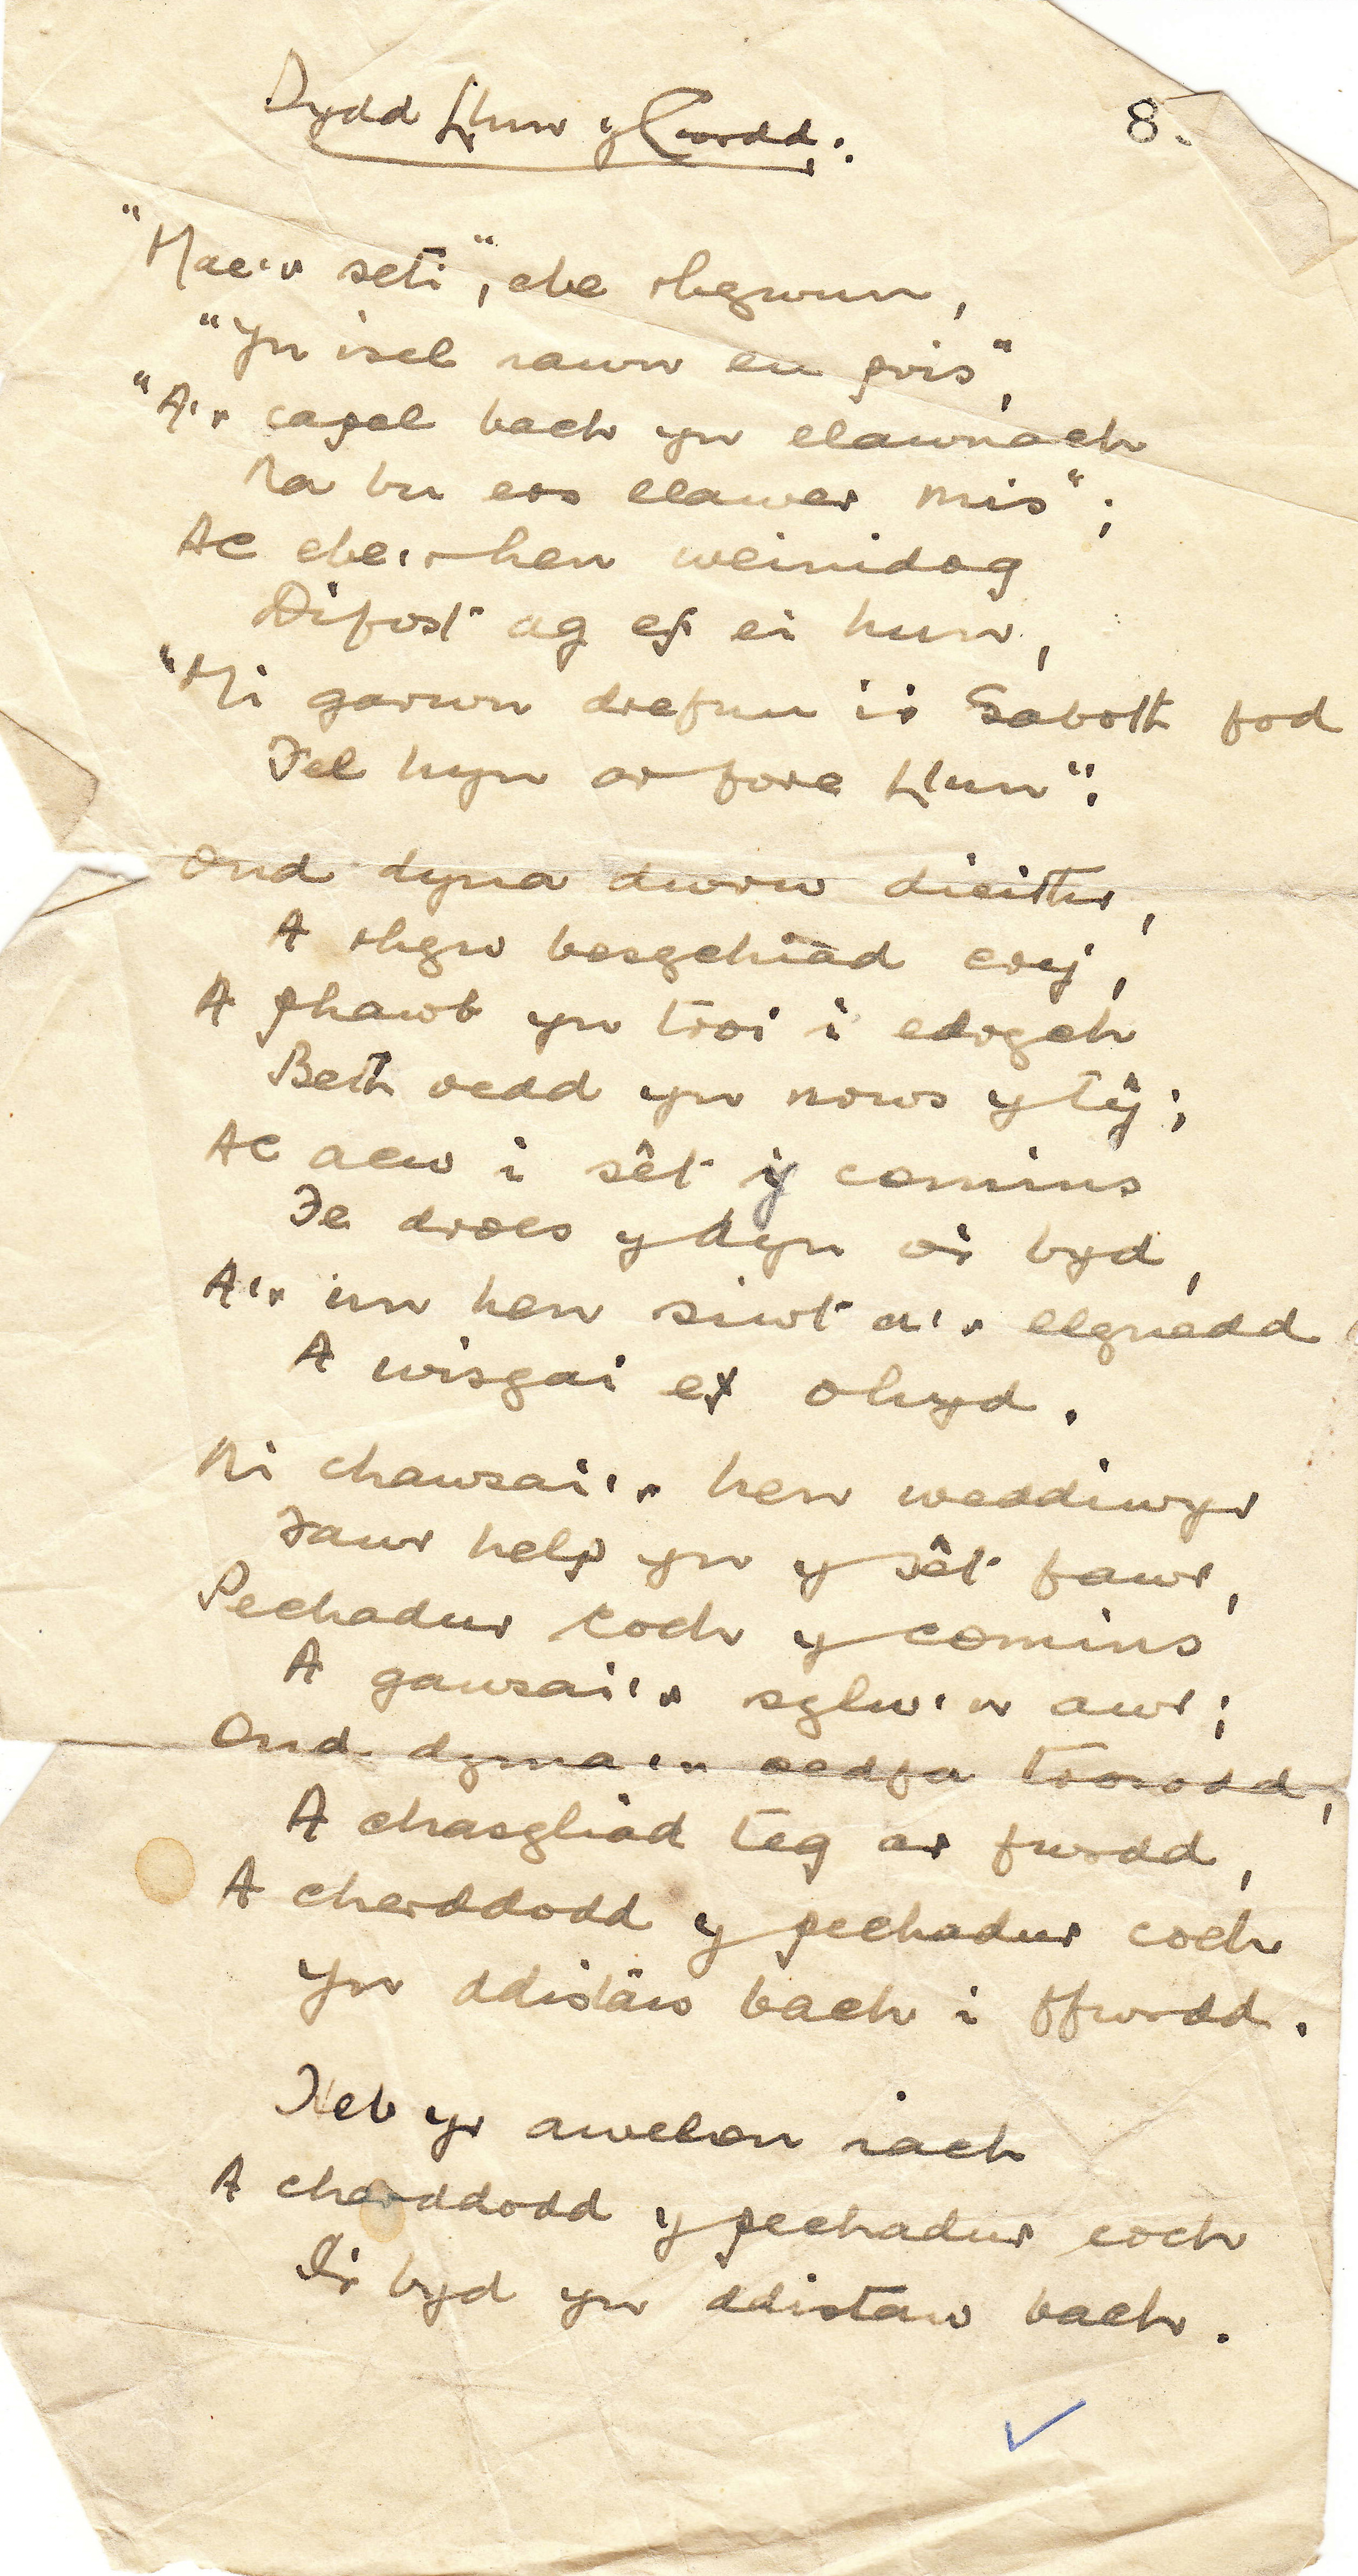 Dydd Llun y Cwrdd.
8.
"Mae'r seti", ebe rhywun,
"Yn isel iawn eu pris",
"A'r capel bach yn llawnach
Na bu ers llawer mis";
Ac ebe'r hen weinidog
Difost ag ef ei hun,
"Mi garwn drefnu i'r Saboth fod
Fel hyn ar fore Llun".
Ond dyna dwrw dieithr,
A rhyw besychiad cry',
A phawb yn troi i edrych
Beth oedd yn nrws y tŷ;
Ac aew i sêt y comins
Fe droes y dyn o'r byd,
A'r un hen siwt a'r llgnedd
A wisgai ef o hyd.
Ni chawsai'r hen weddiwyr
Fawr help yn y sêt fawr,
Pechadur coch y comins
A gawsai'r sylw'n awr;
Ond dyma'r oedfa trosodd,
A chasgliad teg ar fwrdd,
A cherddodd y pechadur coch
Yn ddistäw bach i ffwrdd.
Heb yr awelon iach
A cherddodd y pechadur coch
I'r byd yn ddistaw bach.